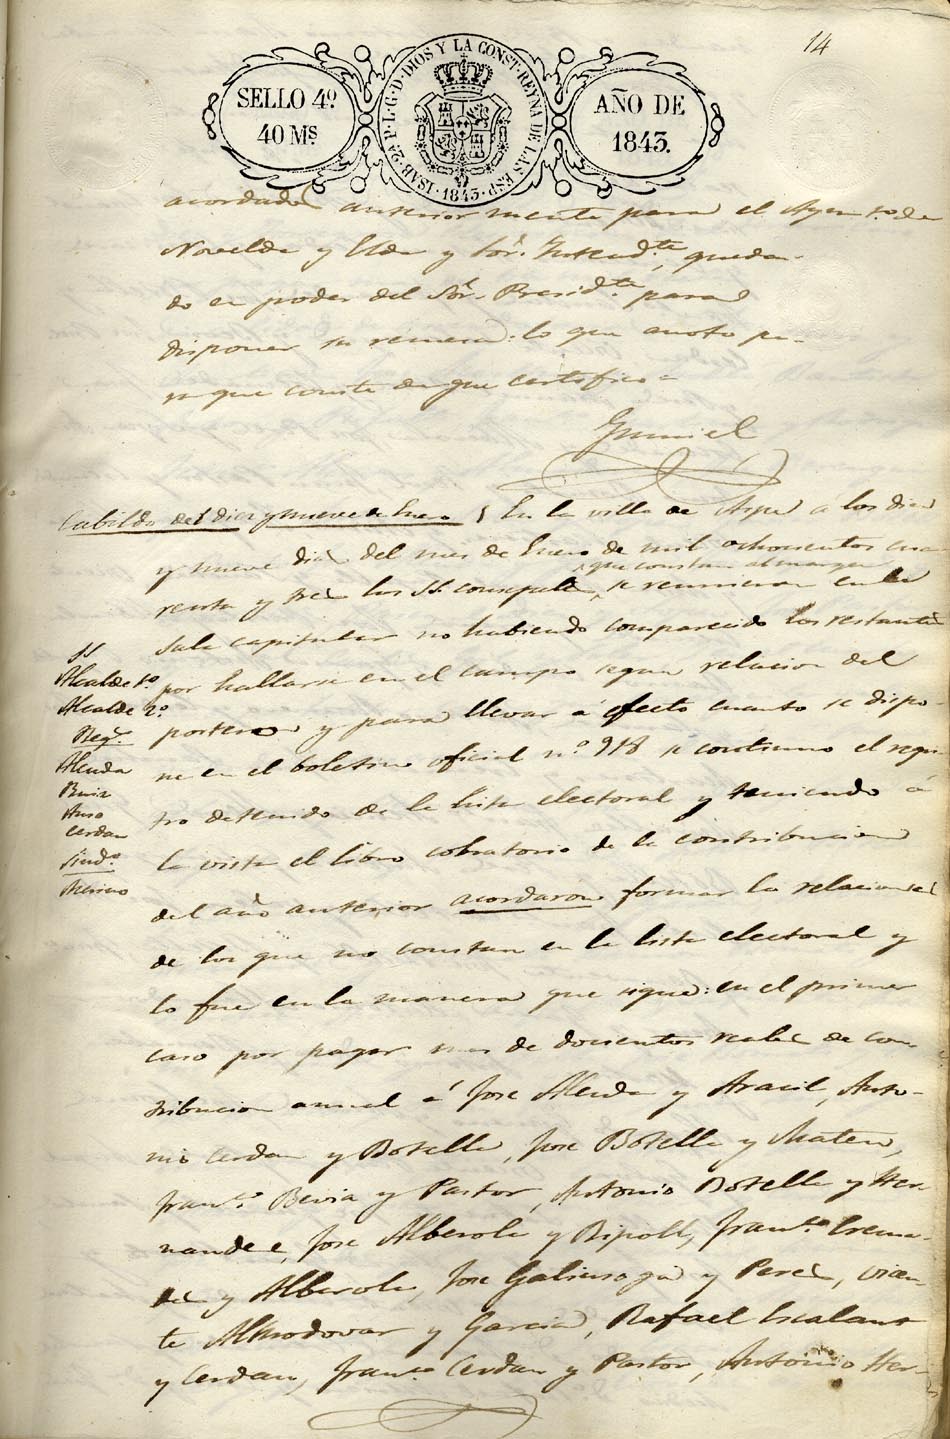 14
SELLO 4º
40 Mˢ.
ISAB. 2ª P. L. G. D. DIOS Y LA CONST. REYNA DE LAS ESP. 1843.
AÑO DE
1843.
acordada anteriormente para el Ayunto. de
Novelda y Elda y Sor. Yntendte, quedan-
do en poder del Sor. Presidte para
disponer su remesa: lo que anoto pa-
ra que conste de que certifico=
Cabildo del dies y nueve de Enero } En la villa de Aspe á los dies
y nueve dias del mes de Enero de mil ochocientos cua
que constan al margen
renta y tres los SS. se reunieron en la
Sala capitular no habiendo comparecido los restantes
por hallarse en el campo segun relacion del
portero y para llevar á efecto cuanto se dispo-
ne en el boletin oficial nº 918 se continuo el regis
tro detenido de la lista electoral y teniendo á
la vista el libro cobratorio de la contribucion
del año anterior acordaron formar la relacion
de los que no constan en la lista electoral y
lo fue en la manera que sigue: en el primer
caso por pagar mas de docientos reales de con
tribucion anual á Jose Alenda y Aracil, Anto-
nio Cerdan y Botella, Jose Botella y Mateu,
Franco. Bevia y Pastor, Antonio Botella y Her-
nandez, Jose Alberola y Ripoll, Franco. Crema-
des y Alberola, Jose Galinsoga y Peres, Vicen-
te Almodovar y Garcia, Rafael Escalant
y Cerdan, Franco. Cerdan y Pastor, Antonio Her-
SS
Alcalde 1º
Alcalde 2º
Reg.
Alenda
Ruiz
Cerdan
Sindo.